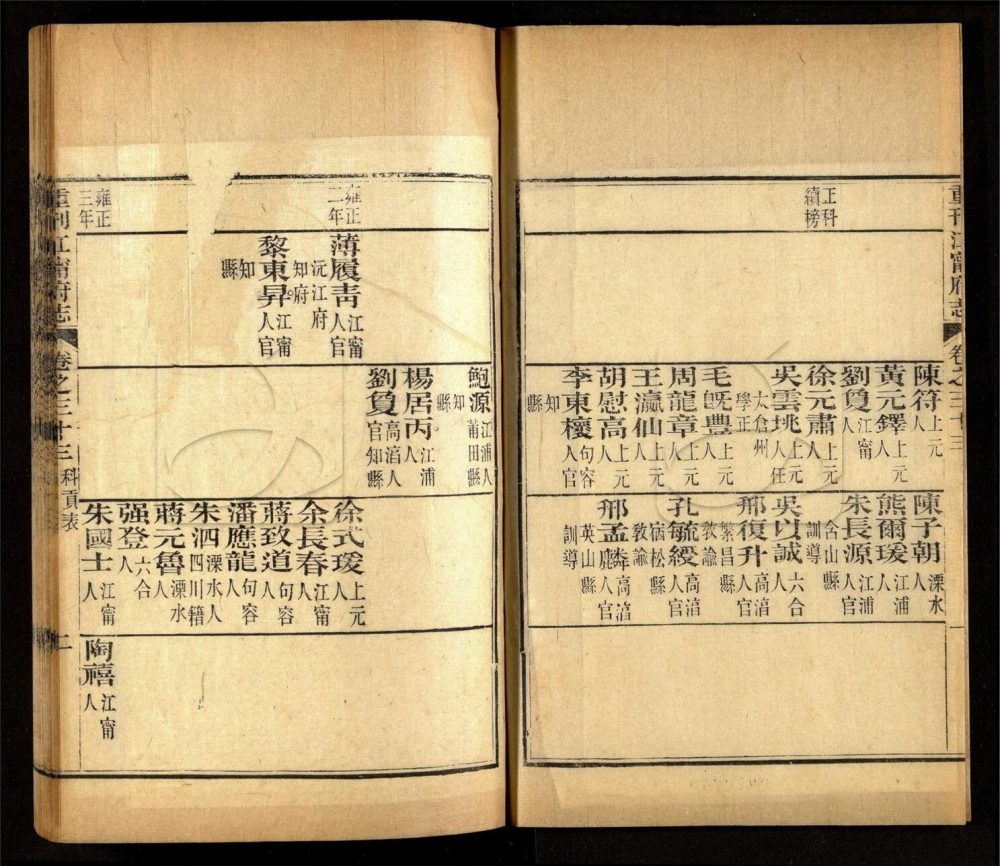 重刊江甯府志
卷之三十三
正科續榜
陳符 上元人
黃元鐸 上元人
劉𧴪 江甯人
徐元肅 上元人
吳雲 上元人任太倉州學正
毛既豐 上元人
周龍章 上元人
王瀛仙 上元人
胡慰高 上元人
李東櫰 句容人官知縣
陳子朝 溧水人
熊爾瑗 江浦人
朱長源 江浦人官含山縣訓導
吳以誠 六合人
邢復升 高淳人官繁昌縣教諭
孔毓綬 高淳人官宿松縣教諭
邢孟麟 高淳人官英山縣訓導
雍正二年
薄履青 江甯人官沅江府知府
黎東昇 江甯人官知縣
鮑源 江浦人莆田縣知縣
楊居丙 江浦人
劉𧴪 高淳人官知縣
徐式瑗 上元人
余長春 江甯人
蔣致道 句容人
潘應龍 句容人
朱泗 溧水人四川籍
蔣元魯 溧水人
强登 六合人
雍正三年
朱國士 江甯人
陶禧 江甯人
重刊江甯府志
卷之三十三 科貢表
二